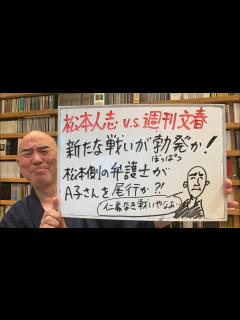 松本人志 v.s. 週刊文春
新たな戦いが勃発か!
ぼっぱつ
松本側の弁護士が
A子さんを尾行か?!
仁義なき戦いやなぁ…